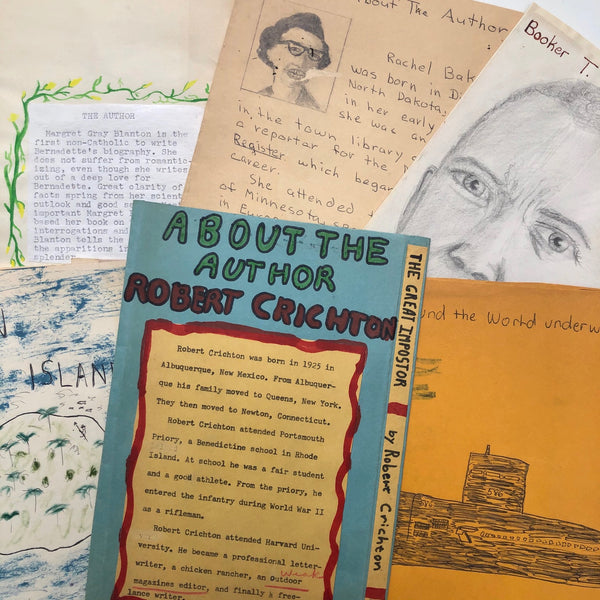 THE AUTHOR
Margret Gray Blanton is the
first non-Catholic to write
Bernadette's biography. She
does not suffer from romantic-
izing, even though she writes
out of a deep love for
Bernadette. Great clarity of
facts spring from her scient
outlook and good se
important Margret
based her book on
interrogations and
Blanton tells the
the apparitions i
splender
About The Author
Rachel Bak
was born in Di
North Dakota,
in her early
she was an
in the town library
a reporter for the
Register which began
career.
She attended
of Minnesota
in Europe
Booker T.
ABOUT THE
AUTHOR
ROBERT CRICHTON
Robert Crichton was born in 1925 in
Albuquerque, New Mexico. From Albuquer-
que his family moved to Queens, New York.
They then moved to Newton, Connecticut.
Robert Crichton attended Portsmouth
Priory, a Benedictine school in Rhode
Island. At school he was a fair student
and a good athlete. From the priory, he
entered the infantry during World War II
as a rifleman.
Robert Crichton attended Harvard Uni-
versity. He became a professional letter-
writer, a chicken rancher, an Outdoor
weak
magazines editor, and finally a free-
lance writer.
THE GREAT IMPOSTOR by Robert Crichton
und the World underw
ISLAN